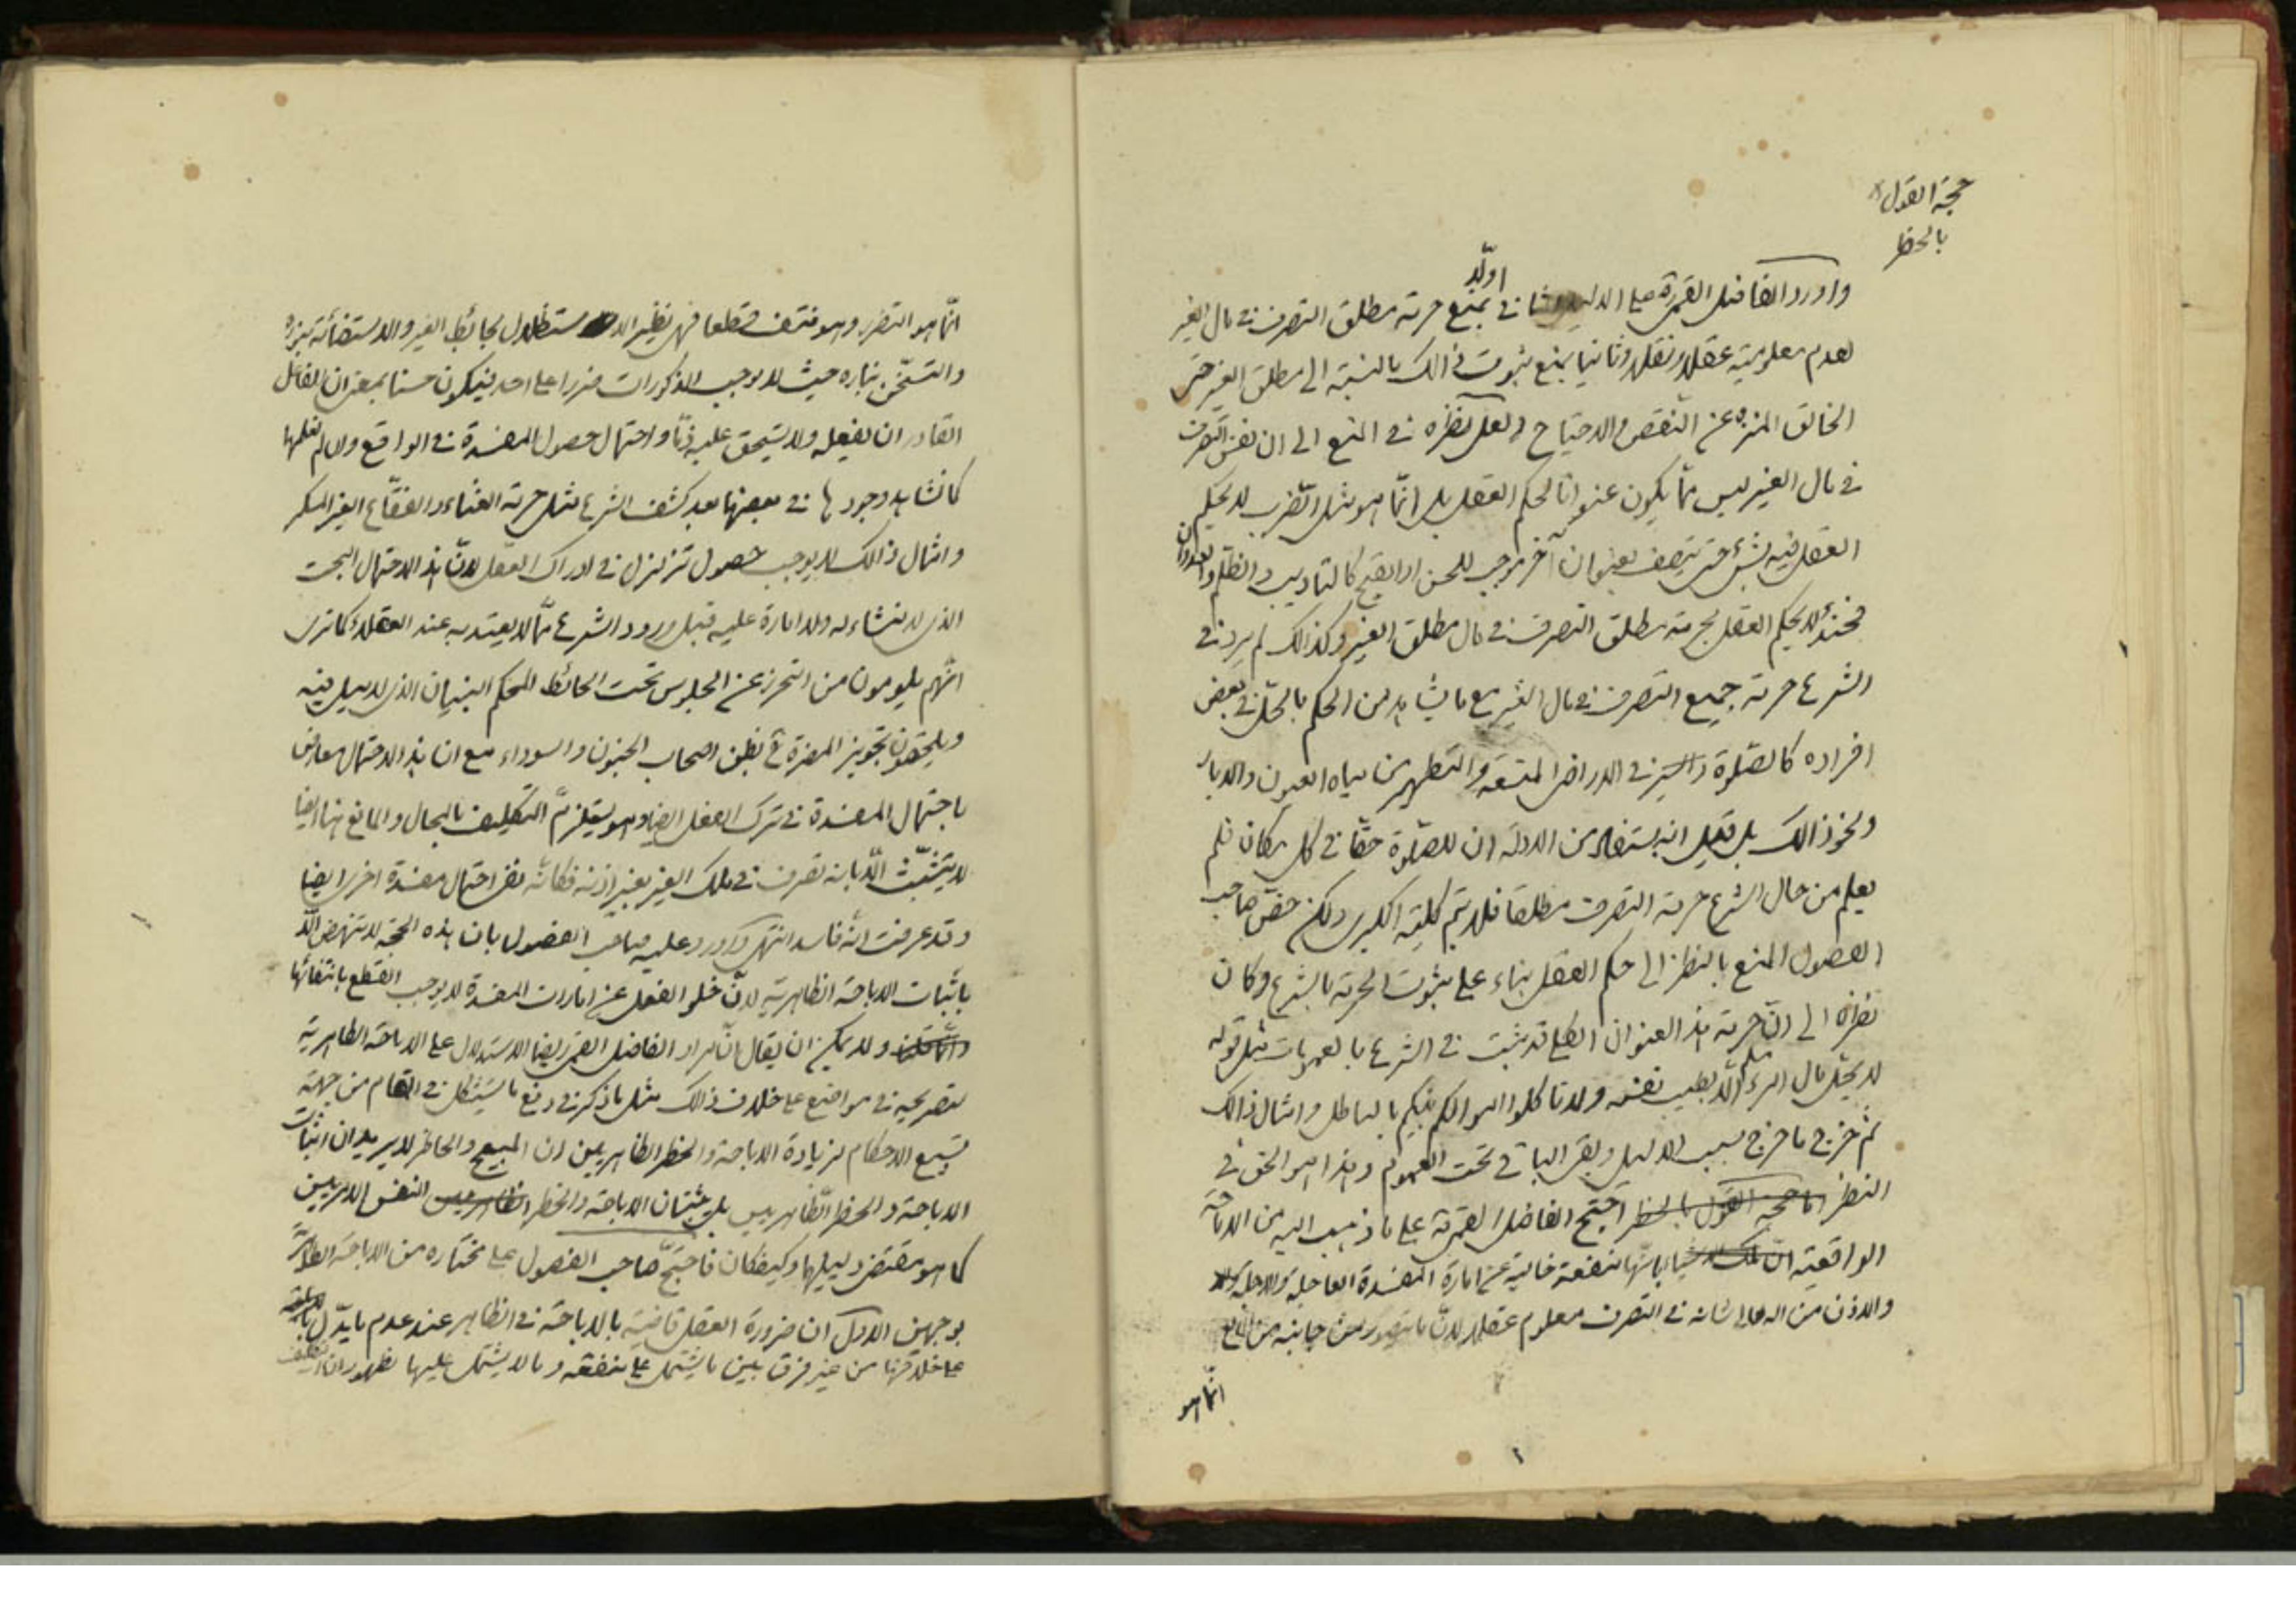 حجة القول
بالحظر
واورد الفاضل القمى ره على الدليل الثانى اولا بمنع حرمة مطلق التصرف فى مال الغير
لعدم معلوميته عقلا ونقلا وثانيا بمنع ثبوت ذالك بالنسبة الى مطلق الغير حتى
الخالق المنزه عن النقص والاحتياج ولعل نظره فى المنع الى ان نفس التصرف
فى مال الغير ليس مما يكون عنوانا لحكم العقل بل انما هو مثل الضرب لا يحكم
العقل فيه بشئ حتى يتصف بعنوان آخر موجب للحسن او القبح كالتاديب والظلم والعدوان
فحينئذ لا يحكم العقل بحرمة مطلق التصرف فى مال مطلق الغير وكذالك لم يرد فى
الشرع حرمة جميع التصرف فى مال الغير مع ما يشاهد من الحكم بالحل فى بعض
افراده كالصلوة والسير فى الاراضى المتسعة والتطهير من مياه العيون والابار
ونحو ذالك بل قيل انه يستفاد من الادلة ان للصلوة حقا فى كل مكان فلم
يعلم من حال الشرع حرمة التصرف مطلقا فلا يتم كلية الكبرى ولكن خص صاحب
الفصول المنع بالنظر الى حكم العقل بناء على ثبوت الحرمة بالشرع وكان
نظره الى ان حرمة هذا العنوان الكلى قد ثبت فى الشرع بالعمومات مثل قوله
لا يحل مال امرء مسلم الا بطيب نفسه ولا تاكلوا اموالكم بينكم بالباطل وامثال ذالك
ثم خرج ما خرج بسبب الدليل وبقى الباقى تحت العموم وهذا هو الحق فى
النظر اما حجة القول بالحظر احتج الفاضل القمى ره على ما ذهب اليه من الاباحة
الواقعية ان تلك الاشياء بانها منفعة خالية عن امارة المفسدة العاجلة والاجلة
والاذن من اله تعالى شانه فى التصرف معلوم عقلا لان ما يتصور من جانبه من المانع
انما هو
انما هو التضرر وهو منتف قطعا فهى نظير الاستظلال بحائط الغير والاستضائة بنوره
والتسخن بناره حيث لا يوجب المذكورات ضررا على احد فيكون حسنا بمعنى ان للفاعل
القادر ان يفعله ولا يستحق عليه ذما واحتمال حصول المفسدة فى الواقع وان لم نعلمها
كما نشاهد وجودها فى بعضها بعد كشف الشرع مثل حرمة الغناء والفقاع الغير المسكر
وامثال ذالك لا يوجب حصول تزلزل فى ادراك العقل لان هذا الاحتمال البحت
الذى لا منشاء له ولا امارة عليه قبل ورود الشرع مما لا يعتد به عند العقلاء كما ترى
انهم يلومون من التحرز عن الجلوس تحت الحائط المحكم البنيان الذى لا ميل فيه
ويلحقون تجويز المضرة ح بظن اصحاب الجنون والسوداء مع ان هذا الاحتمال معارض
باحتمال المفسدة فى ترك الفعل ايضا وهو يستلزم التكليف بالمحال والمانع هنا ايضا
لا يتشبث الا بانه تصرف فى ملك الغير بغير اذنه فكانه نفى احتمال مفسدة اخرى ايضا
وقد عرفت انه فاسد انتهى واورد عليه صاحب الفصول بان هذه الحجة لا تنهض الا
باثبات الاباحة الظاهرية لان خلو الفعل عن امارات المفسدة لا يوجب القطع بانتفائها
ولا يمكن ان يقال ان مراد الفاضل القمى ايضا الاستدلال على الاباحة الظاهرية
لتصريحه فى مواضع على خلاف ذالك مثل ما ذكر فى دفع ما يستشكل فى المقام من جهة
تسبيع الاحكام لزيادة الاباحة والحظر الظاهريين من ان المبيح والحاظر لا يريدان اثبات
الاباحة والحظر الظاهريين بل يثبتان الاباحة والحظر الظاهريين النفس الامريين
كما هو مقتضى دليلهما وكيفكان فاحتج صاحب الفصول على مختاره من الاباحة الظاهرية
بوجهين الاول ان ضرورة العقل قاضية بالاباحة فى الظاهر عند عدم ما يدل
على خلافها من غير فرق بين ما يشتمل على منفعة وما لا يشتمل عليها لظهور ان التكليف